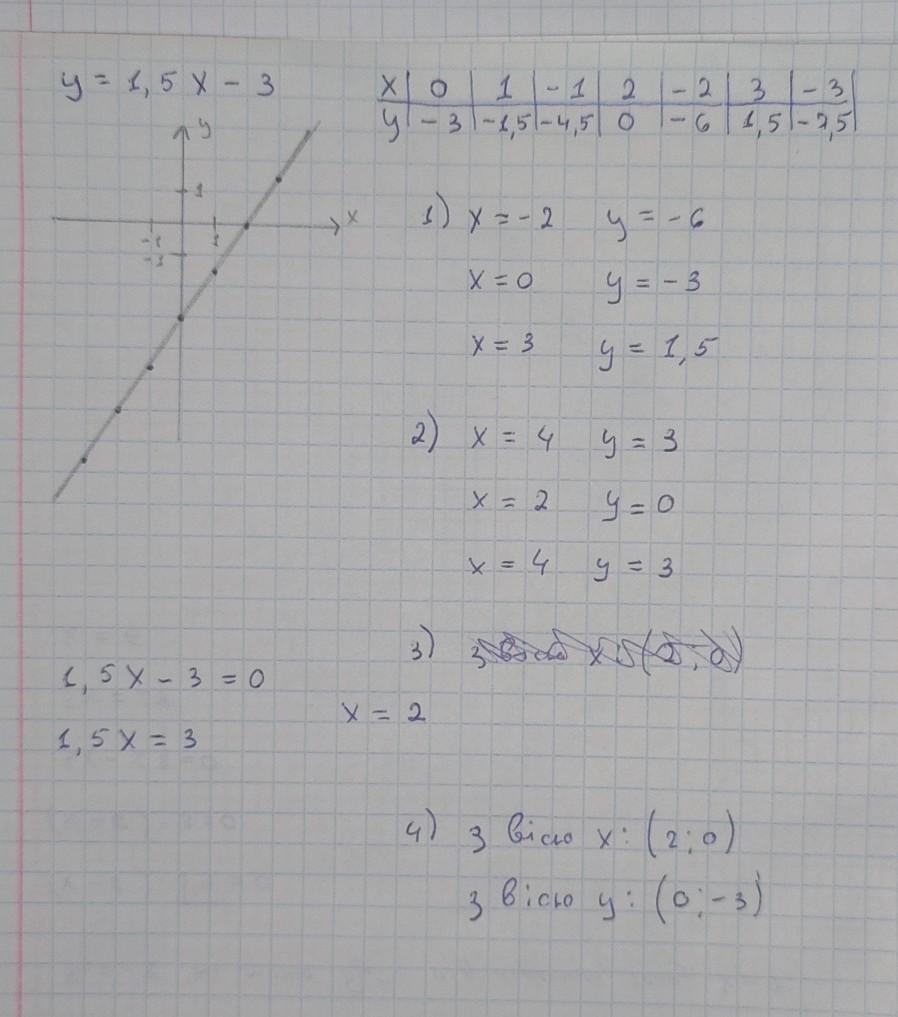 y = 1,5 x - 3
x 0 1 -1 2 -2 3 -3
y -3 -1,5 -4,5 0 -6 1,5 -7,5
y
1
x
-1 1
1) x = -2 y = -6
x = 0 y = -3
x = 3 y = 1,5
2) x = 4 y = 3
x = 2 y = 0
x = 4 y = 3
3)
1,5 x - 3 = 0
x = 2
1,5 x = 3
4) З вісю x: (2; 0)
З вісю y: (0; -3)